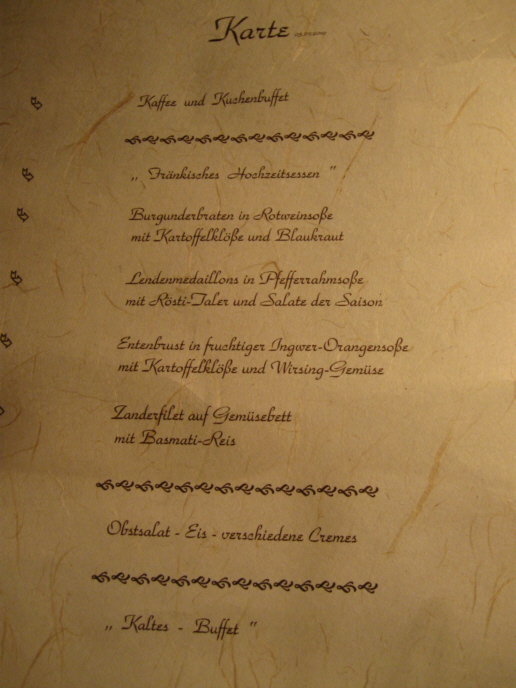 Karte
Kaffee und Kuchenbuffet
„ Fränkisches Hochzeitsessen "
Burgunderbraten in Rotweinsoße
mit Kartoffelklöße und Blaukraut
Lendenmedaillons in Pfefferrahmsoße
mit Rösti-Taler und Salate der Saison
Entenbrust in fruchtiger Ingwer-Orangensoße
mit Kartoffelklöße und Wirsing-Gemüse
Zanderfilet auf Gemüsebett
mit Basmati-Reis
Obstsalat - Eis - verschiedene Cremes
„ Kaltes - Buffet "